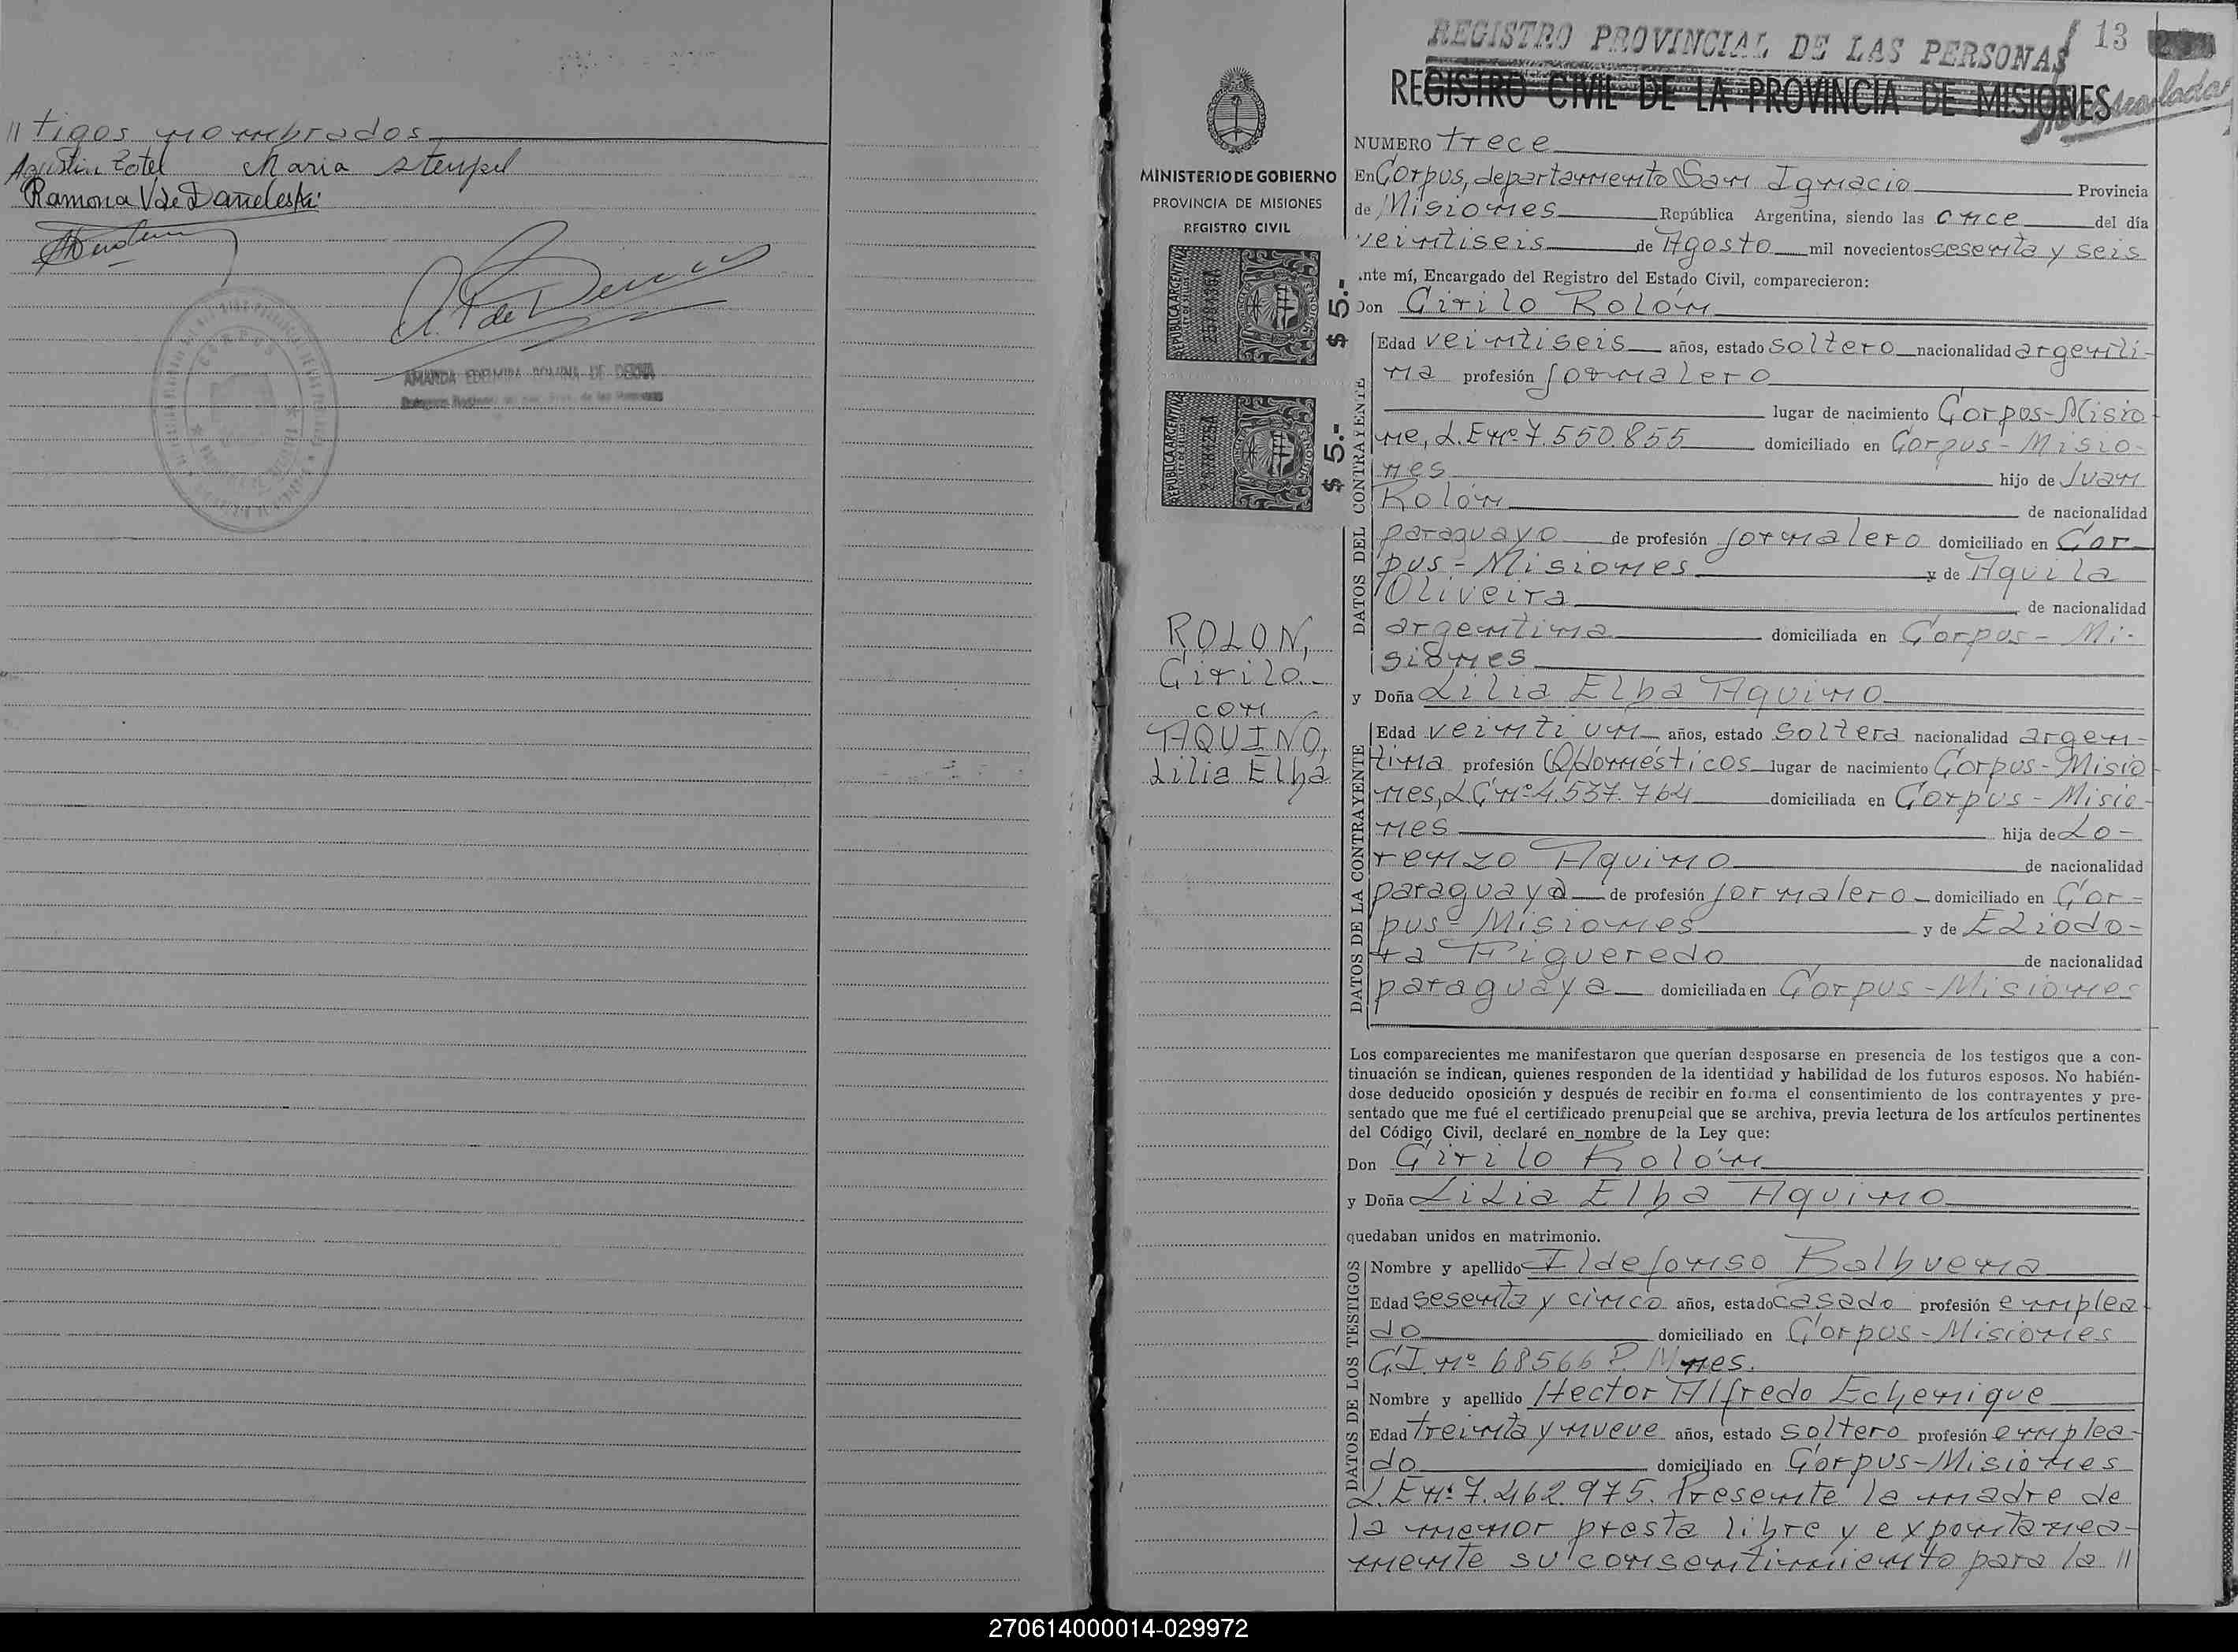 // tigos nombrados
Maria Stempel
Ramona V de Daneleski
AMANDA EDELMIRA ROMINA DE DERNA
CORPUS
REGISTRO PROVINCIAL DE LAS PERSONAS
13
REGISTRO CIVIL DE LA PROVINCIA DE MISIONES
MINISTERIO DE GOBIERNO
PROVINCIA DE MISIONES
REGISTRO CIVIL
REPUBLICA ARGENTINA
$ 5.-
REPUBLICA ARGENTINA
$ 5.-
ROLON,
Cirilo.-
con
AQUINO,
Lilia Elba
NUMERO trece
En Corpus, departamento San Ignacio Provincia
de Misiones República Argentina, siendo las once del día
veintiseis de Agosto mil novecientos sesenta y seis
nte mí, Encargado del Registro del Estado Civil, comparecieron:
Don Cirilo Rolón
DATOS DEL CONTRAYENTE
Edad veintiseis años, estado soltero nacionalidad argenti-
na profesión jornalero
lugar de nacimiento Corpus-Misio
ne, L.E nº 7.550.855 domiciliado en Corpus-Misio-
nes hijo de Juan
Rolón de nacionalidad
paraguayo de profesión jornalero domiciliado en Cor-
pus-Misiones y de Aquila
Oliveira de nacionalidad
argentina domiciliada en Corpus-Mi-
siones
y Doña Lilia Elba Aquino
DATOS DE LA CONTRAYENTE
Edad veinti un años, estado soltera nacionalidad argen-
tina profesión Q/domésticos lugar de nacimiento Corpus-Misio
nes, L C nº 4.537.764 domiciliada en Corpus-Misio-
nes hija de Lo-
renzo Aquino de nacionalidad
paraguaya de profesión jornalero domiciliado en Cor-
pus-Misiones y de Eliodo-
ra Figueredo de nacionalidad
paraguaya domiciliada en Corpus-Misiones
Los comparecientes me manifestaron que querían desposarse en presencia de los testigos que a con-
tinuación se indican, quienes responden de la identidad y habilidad de los futuros esposos. No habién-
dose deducido oposición y después de recibir en forma el consentimiento de los contrayentes y pre-
sentado que me fué el certificado prenupcial que se archiva, previa lectura de los artículos pertinentes
del Código Civil, declaré en nombre de la Ley que:
Don Cirilo Rolón
y Doña Lilia Elba Aquino
quedaban unidos en matrimonio.
DATOS DE LOS TESTIGOS
Nombre y apellido Ildefonso Balbuena
Edad sesenta y cinco años, estado casado profesión emplea
do domiciliado en Corpus-Misiones
C.I. nº 68566 P. Mnes.
Nombre y apellido Hector Alfredo Echenique
Edad treinta y nueve años, estado soltero profesión emplea-
do domiciliado en Corpus-Misiones
L.E nº 7.462.975. Presente la madre de
la menor presta libre y expontanea-
mente su consentimiento para la //
270614000014-029972